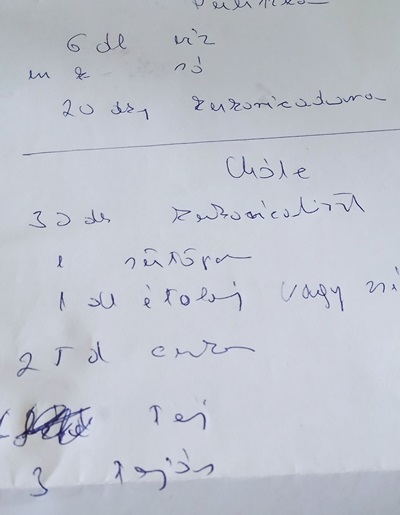 6 dl víz
só
20 dkg kukoricadara
Chóle
30 dk kukoricaliszt
1 sütőpor
1 dl étolaj vagy
2 T d cukor
tej
3 tojás